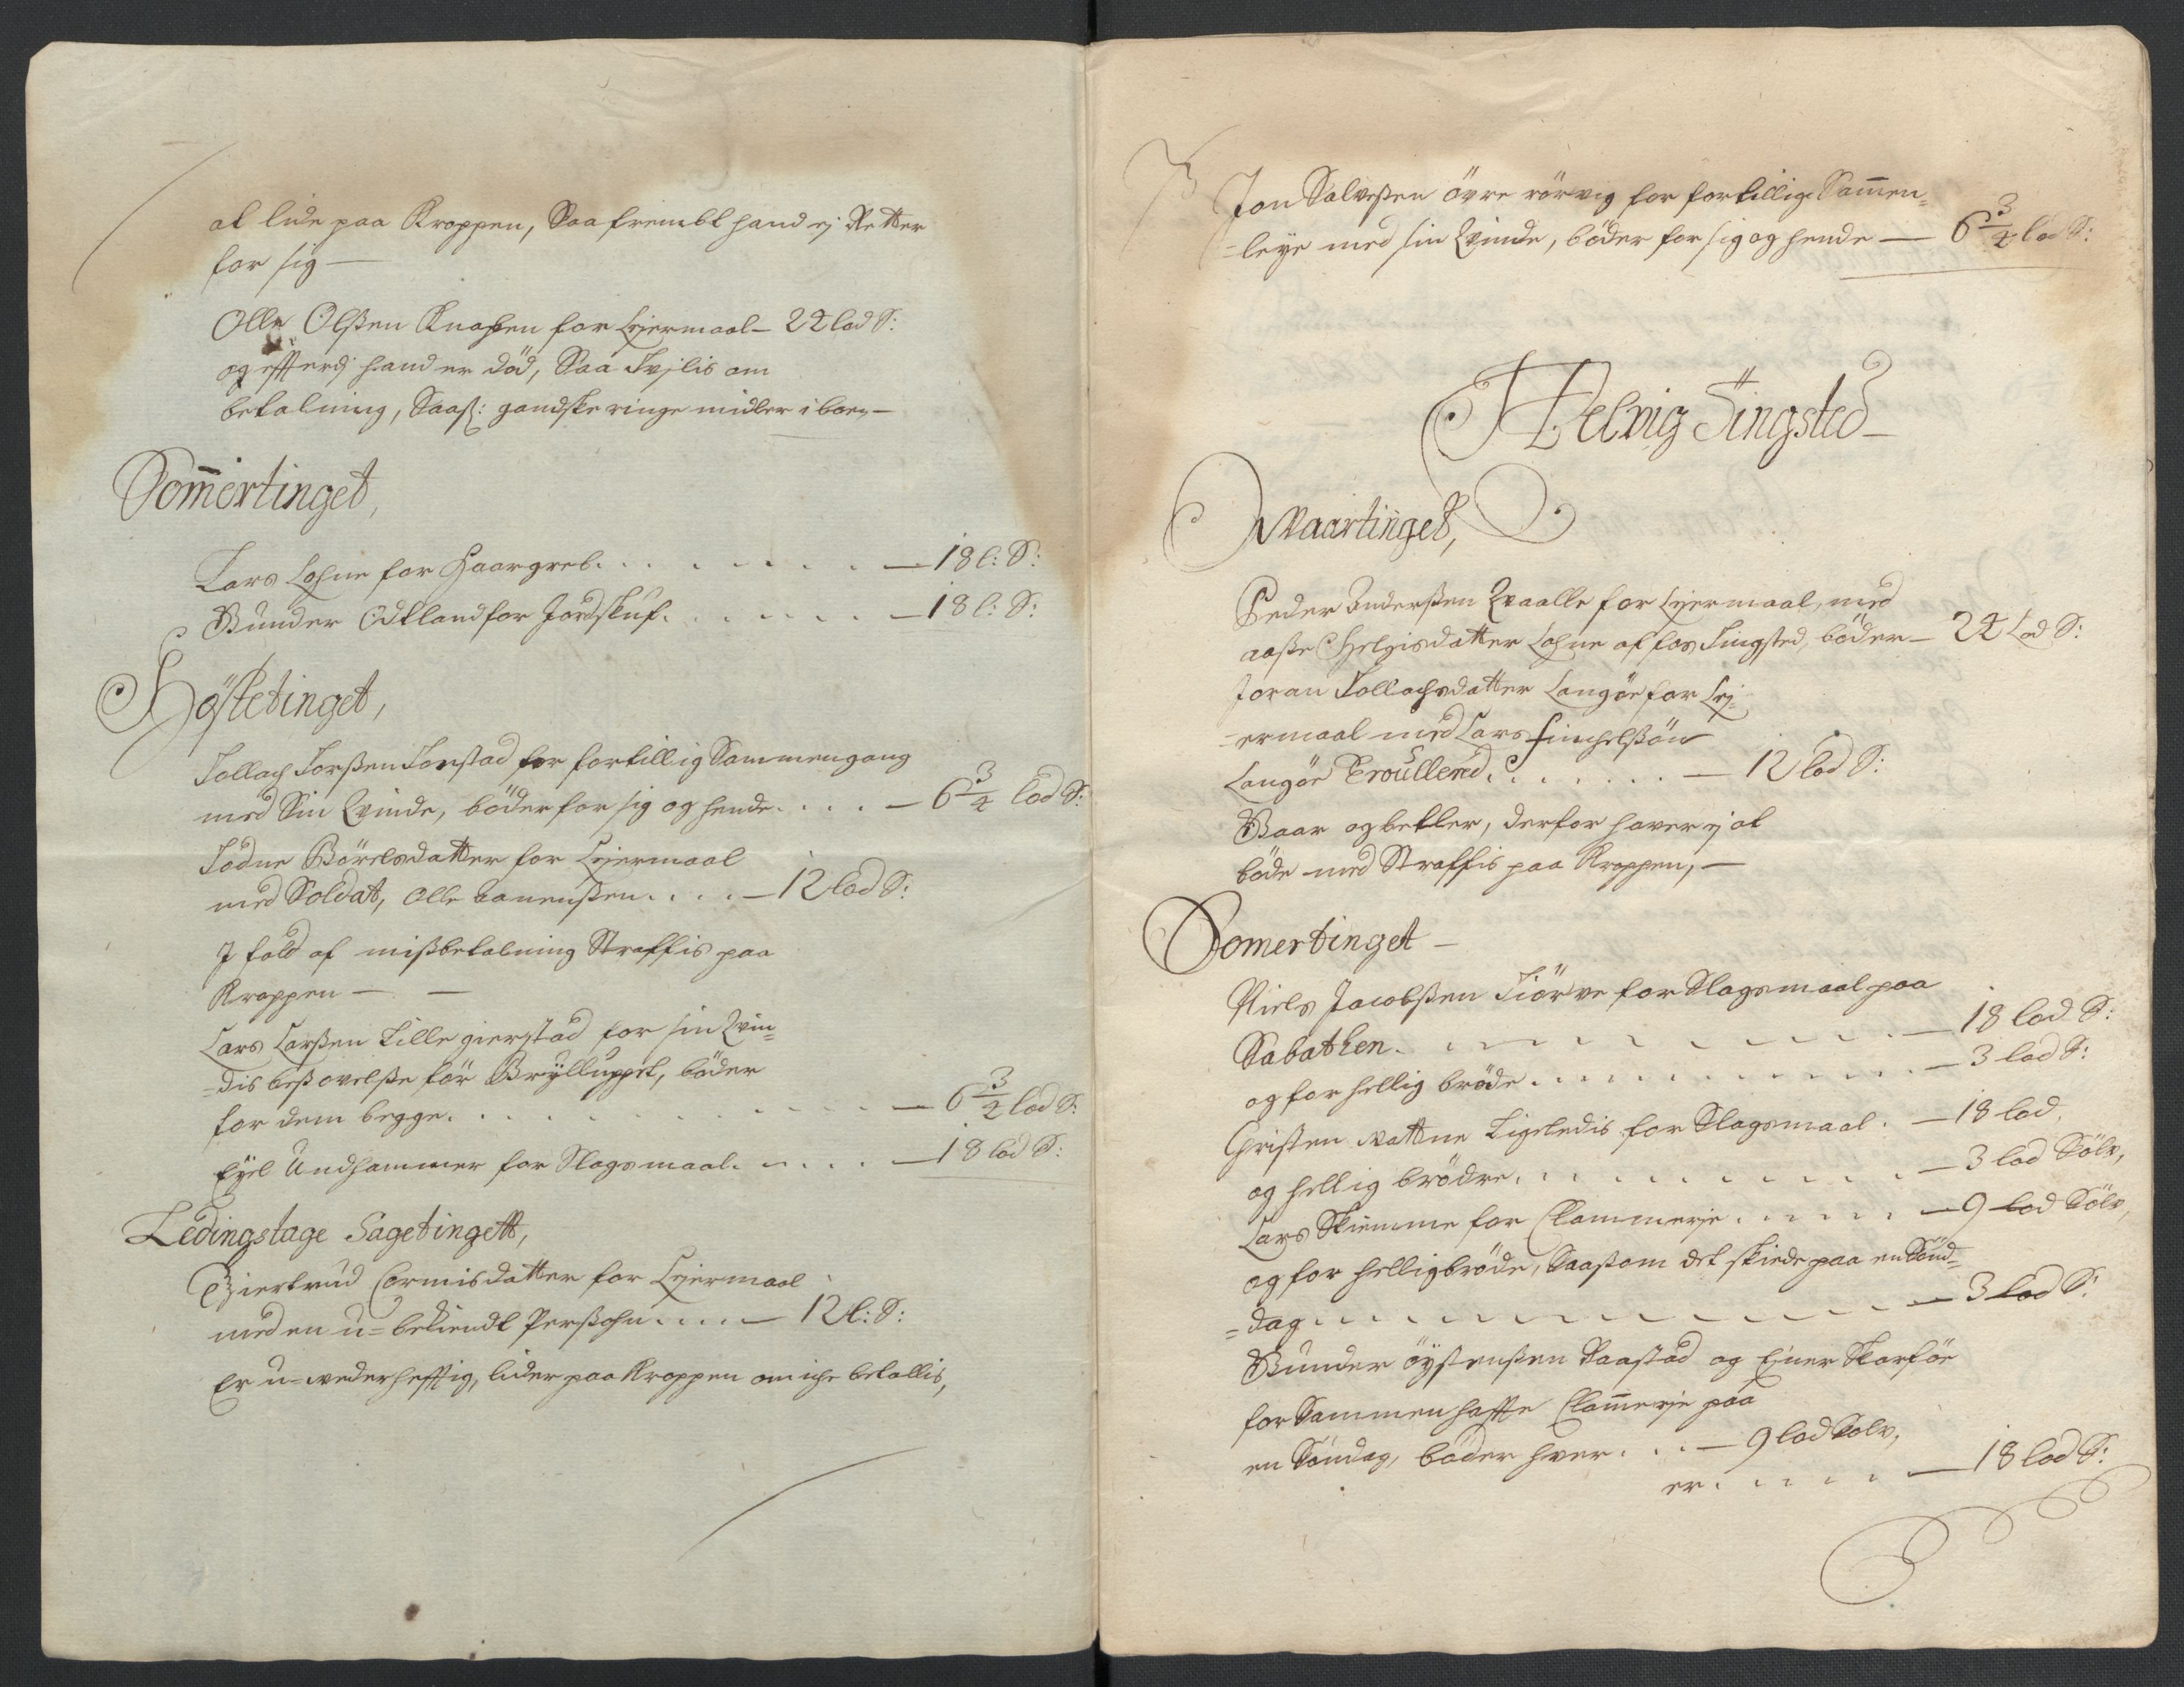 at lide paa Kroppen, Saafremt hand ej Retter
for sig —
Olle Olßen Knaben for Lejermaal — 24 lod S:
og efftterdj hand er död, Saa Tvjlis om
betalning, Saaß: gandske ringe midler i boen —
Som̄ertinget,
Lars Lohne for Haargreb. . . . . . . — 18 l: S:
Gunder Odtland for Jordskuf. . . . . . — 18 l: S:
Höstetinget,
Tollach Torßen Tonstad for fortillig Sammengang
med Sin Qvinde, böder for sig og hende. . . . — 6 3/4 lod S:
Todne Börelsdatter for Lejermaal
med Soldat, Olle . . . . — 12 lod S:
J fald af mißbetalning Straffis paa
Kroppen — —
Lars Larßen Lille gierstad for sin Qvin=
=dis besovelße för Brÿlluppet, böder
for dem begge. . . . . . . . . — 6 3/4 lod S:
Eyel Undhammer for Slagsmaal. . . . . — 18 lod S:
Ledingstage Sagetingett,
Giertrud Cormisdatter for Lejermaal
med en u=bekiendt Perßohn. . . . — 12 l: S:
Er u=wederhefftig, lider paa Kroppen om iche betallis,
Jon Salveßen övre rörvig for fortillig Sam̄en=
=leye med sin Qvinde, böder for sig og hende — 6 3/4 lod S:
Helvig Tingsted —
Waartinget,
Peder Anderßen Qvaalle for Lejermaal, med
aaße Helgisdatter Lohne af foß Tingsted, böder — 24 Lod S:
Joran Tollachsdatter Langöe for Lej=
=ermaal med Lars Finchelßön
Langöe Troullered. . . . . . . — 12 lod S:
Gaar og betler, derfor haver ej at
böde med Straffis paa Kroppen, —
Somertinget —
Niels Jacobßen Tiörve for Slagsmaal paa
Sabathen. . . . . . . . . — 18 lod S:
og for hellig bröde. . . . . . . . . — 3 lod S:
Christen Vattne Ligeledis for Slagsmaal. — 18 lod.
og hellig brödre. . . . . . . . — 3 lod Sölv,
Lars Skiemme for Clammerje. . . . . — 9 lod Sölv,
og for helligbröde, Saaßom det skiede paa en Sönd=
=dag. . . . . . . . . . — 3 lod S:
Gunder öystenßen Saastad og Ejner Skarföe
for Sammenhaffte Clam̄erje paa
en Söndag, böder hver. . . — 9 lod Sölv,
er. . . . . — 18 lod S: